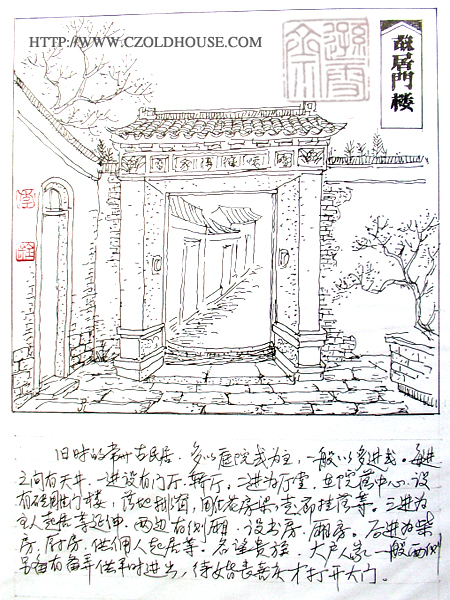 HTTP://WWW.CZOLDHOUSE.COM
故居門楼
旧时的常州古民居，多以庭院式为主，一般以多进式。每进
之间有天井，一进设有门厅、轿厅。二进为厅堂，且院落中心，设
有砖雕门楼，落地排窗，
三进为
主人起居等延伸，两边有侧厢，设书房、厢房。后进为柴
房、厨房，供佣人起居等。名谁贵族、大户人家一般西侧
另备有备弄供平时进出，待婚丧喜庆才打开大门。